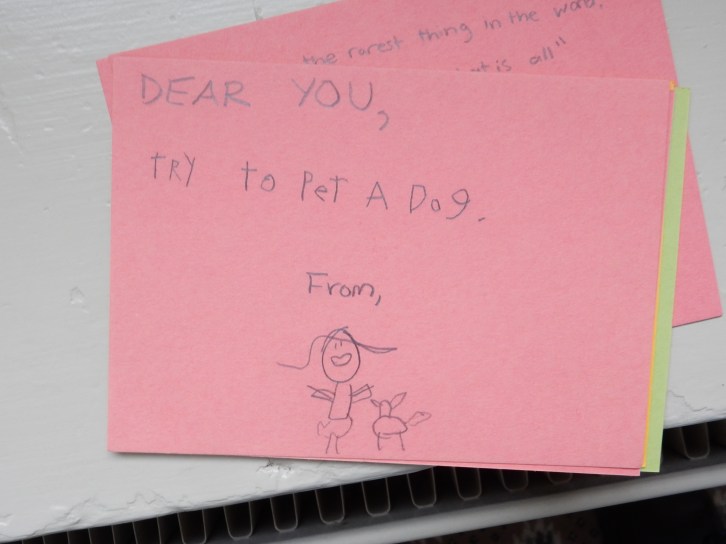 the rarest thing in the world.
is all"
DEAR YOU,
TRY to Pet A Dog.
From,